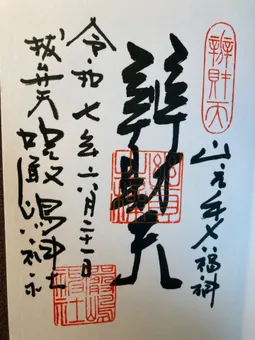 辨財天
山之手七福神
辨財天
令和七年六月二十一日
抜弁天嚴嶋神社
嚴嶋神社